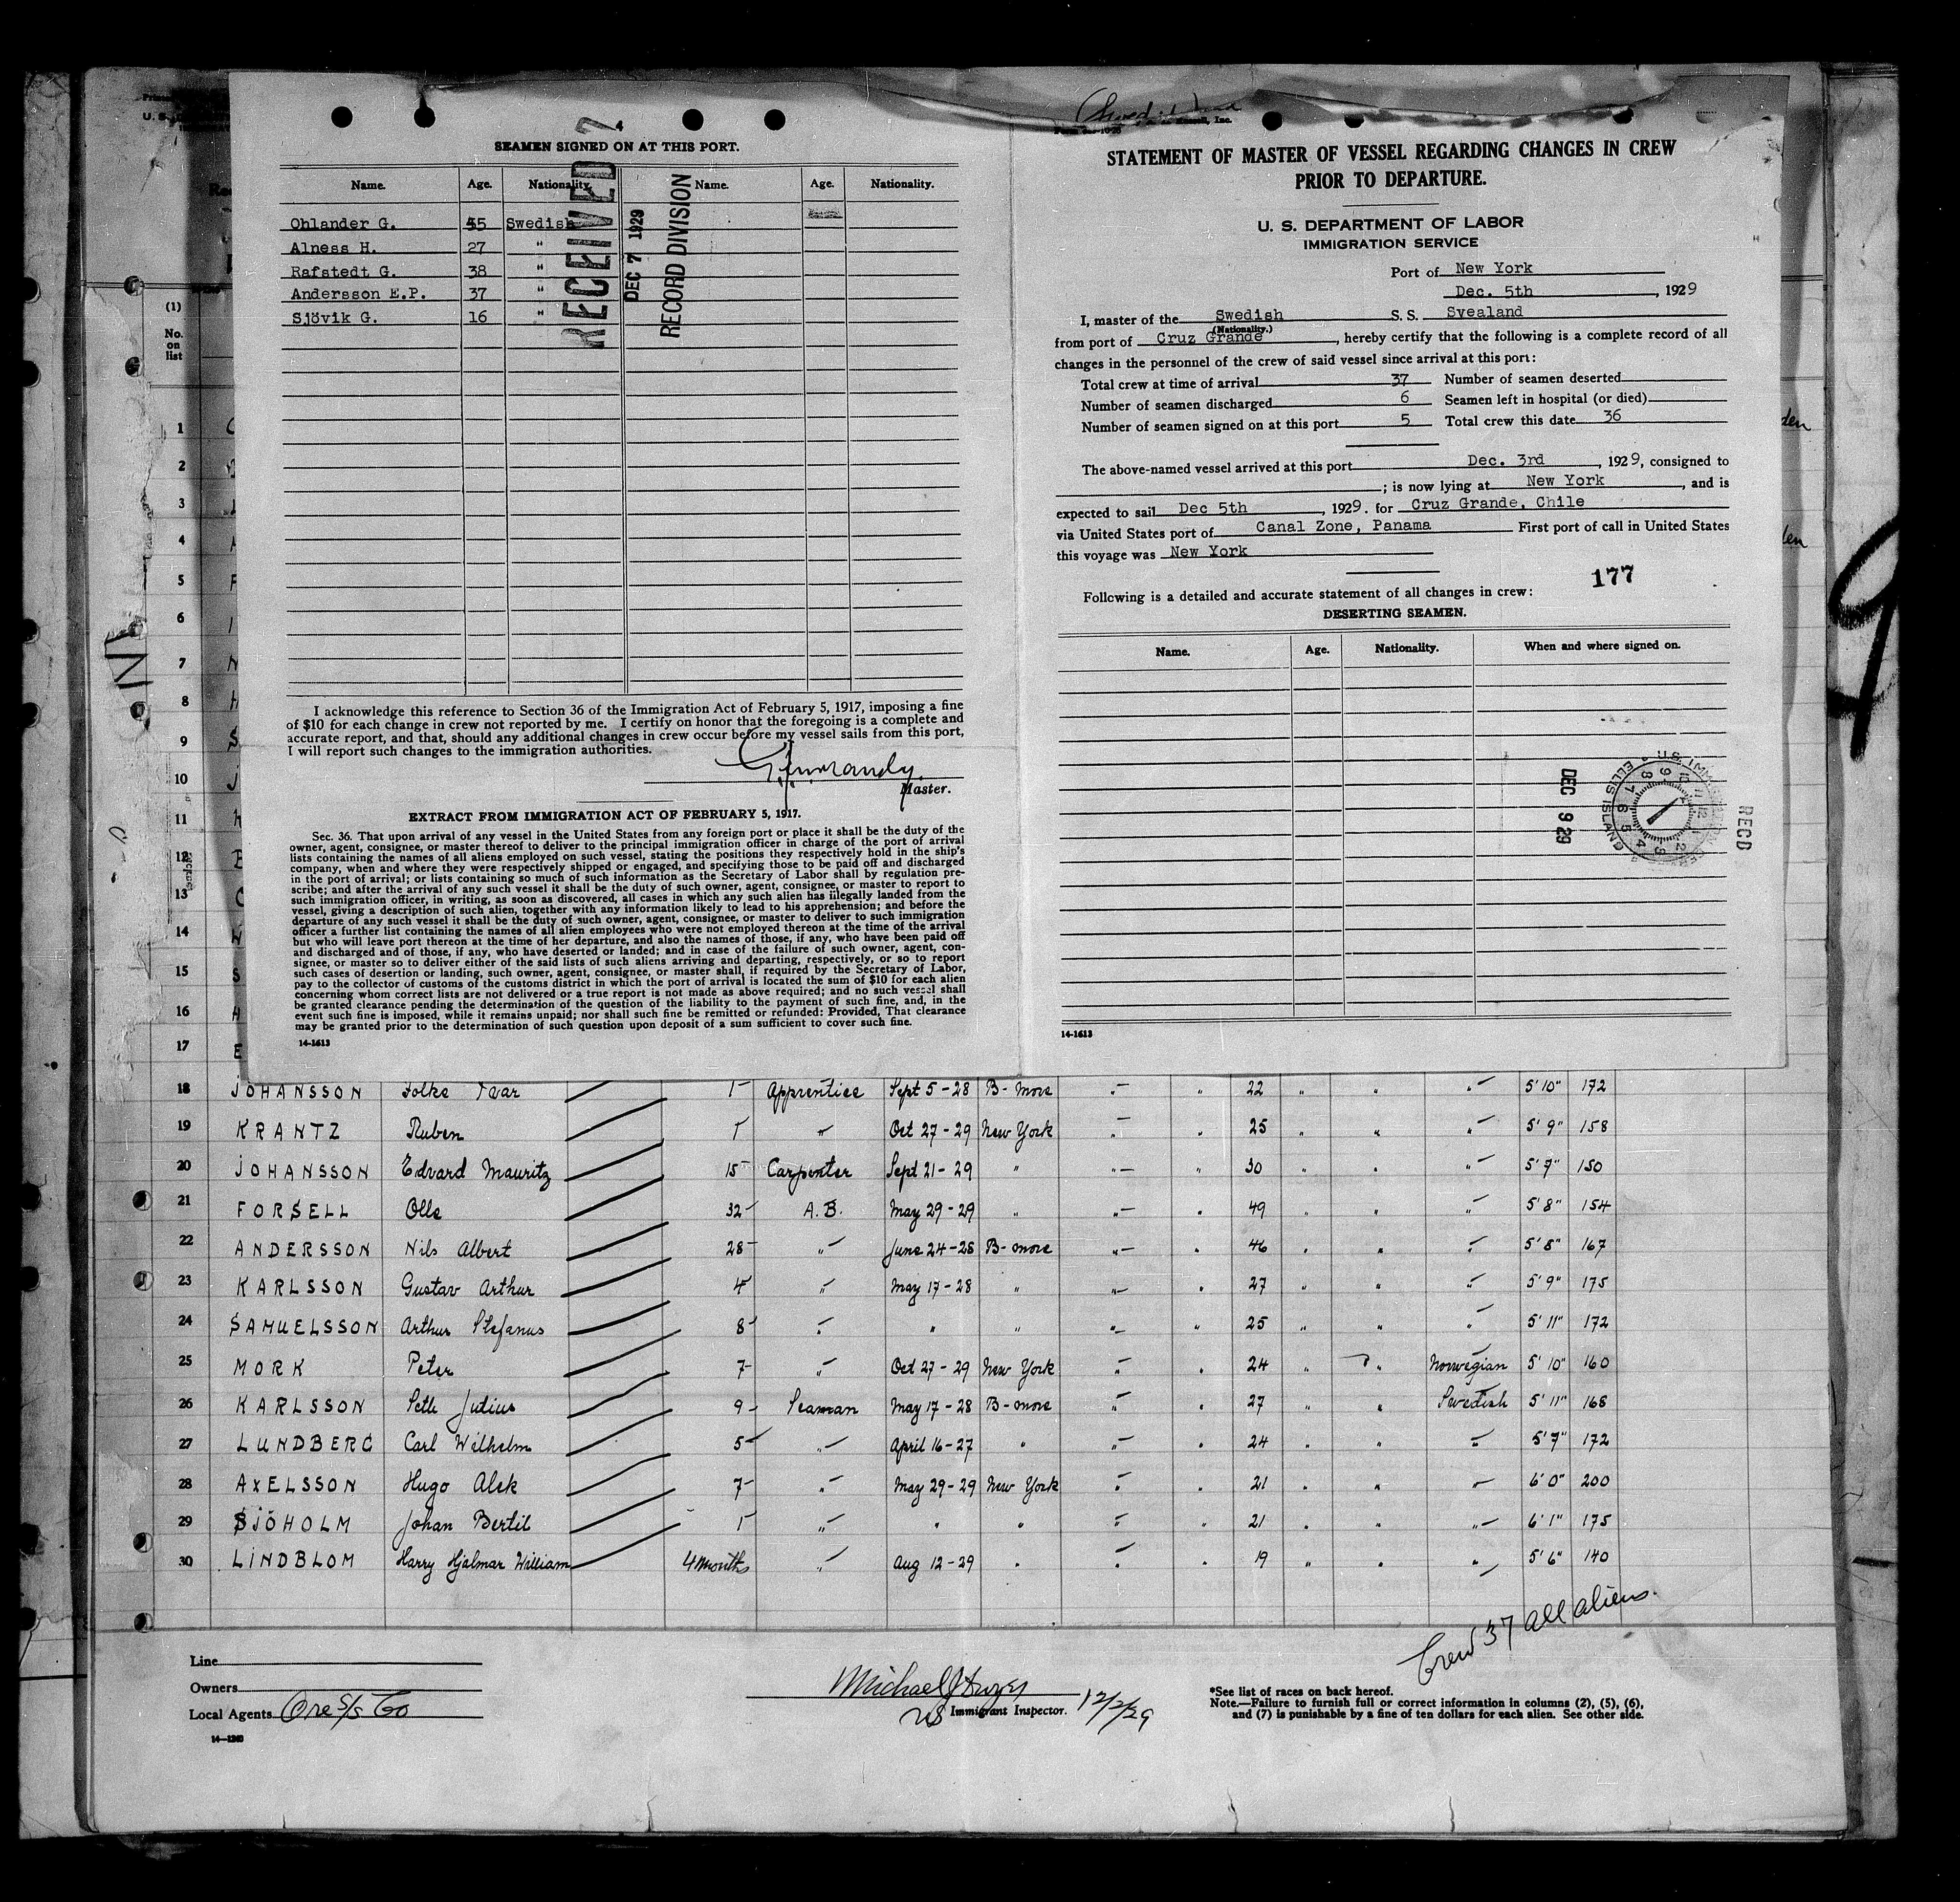 4
SEAMEN SIGNED ON AT THIS PORT.
Name. Age. Nationality. Name. Age. Nationality.
Ohlander G. 55 Swedish
Alness H. 27 "
Rafstedt G. 38 "
Andersson E.P. 37 "
Sjövik G. 16 "
RECEIVED
DEC 7 1929
RECORD DIVISION
I acknowledge this reference to Section 36 of the Immigration Act of February 5, 1917, imposing a fine
of $10 for each change in crew not reported by me. I certify on honor that the foregoing is a complete and
accurate report, and that, should any additional changes in crew occur before my vessel sails from this port,
I will report such changes to the immigration authorities.
Master.
EXTRACT FROM IMMIGRATION ACT OF FEBRUARY 5, 1917.
Sec. 36. That upon arrival of any vessel in the United States from any foreign port or place it shall be the duty of the
owner, agent, consignee, or master thereof to deliver to the principal immigration officer in charge of the port of arrival
lists containing the names of all aliens employed on such vessel, stating the positions they respectively hold in the ship's
company, when and where they were respectively shipped or engaged, and specifying those to be paid off and discharged
in the port of arrival; or lists containing so much of such information as the Secretary of Labor shall by regulation pre-
scribe; and after the arrival of any such vessel it shall be the duty of such owner, agent, consignee, or master to report to
such immigration officer, in writing, as soon as discovered, all cases in which any such alien has illegally landed from the
vessel, giving a description of such alien, together with any information likely to lead to his apprehension; and before the
departure of any such vessel it shall be the duty of such owner, agent, consignee, or master to deliver to such immigration
officer a further list containing the names of all alien employees who were not employed thereon at the time of the arrival
but who will leave port thereon at the time of her departure, and also the names of those, if any, who have been paid off
and discharged and of those, if any, who have deserted or landed; and in case of the failure of such owner, agent, con-
signee, or master so to deliver either of the said lists of such aliens arriving and departing, respectively, or so to report
such cases of desertion or landing, such owner, agent, consignee, or master shall, if required by the Secretary of Labor,
pay to the collector of customs of the customs district in which the port of arrival is located the sum of $10 for each alien
concerning whom correct lists are not delivered or a true report is not made as above required; and no such vessel shall
be granted clearance pending the determination of the question of the liability to the payment of such fine, and, in the
event such fine is imposed, while it remains unpaid; nor shall such fine be remitted or refunded: Provided, That clearance
may be granted prior to the determination of such question upon deposit of a sum sufficient to cover such fine.
14-1613
STATEMENT OF MASTER OF VESSEL REGARDING CHANGES IN CREW
PRIOR TO DEPARTURE.
U. S. DEPARTMENT OF LABOR
IMMIGRATION SERVICE
Port of New York
Dec. 5th, 1929
I, master of the Swedish S. S. Svealand
(Nationality.)
from port of Cruz Grande, hereby certify that the following is a complete record of all
changes in the personnel of the crew of said vessel since arrival at this port:
Total crew at time of arrival 37 Number of seamen deserted
Number of seamen discharged 6 Seamen left in hospital (or died)
Number of seamen signed on at this port 5 Total crew this date 36
The above-named vessel arrived at this port Dec. 3rd, 1929, consigned to
; is now lying at New York, and is
expected to sail Dec 5th, 1929. for Cruz Grande, Chile
via United States port of Canal Zone, Panama First port of call in United States
this voyage was New York
177
Following is a detailed and accurate statement of all changes in crew:
DESERTING SEAMEN.
Name. Age. Nationality. When and where signed on.
DEC 9 29
ELLIS ISLAND
RECD
14-1613
(1)
No.
on
list
1
2
3
4
5
6
7
8
9
10
11
12
13
14
15
16
17
18 JOHANSSON Folke Ivar 1 Apprentice Sept 5-28 B-more " " 22 " " " 5'10" 172
19 KRANTZ Ruben 1 " Oct 27-29 New York " " 25 " " " 5'9" 158
20 JOHANSSON Edvard Mauritz 15 Carpenter Sept 21-29 " " " 30 " " " 5'7" 150
21 FORSELL Olle 32 A.B. May 29-29 " " " 49 " " " 5'8" 154
22 ANDERSSON Nils Albert 28 " June 24-28 B-more " " 46 " " " 5'8" 167
23 KARLSSON Gustav Arthur 4 " May 17-28 " " " 27 " " " 5'9" 175
24 SAMUELSSON Arthur Stefanus 8 " " " " " 25 " " " 5'11" 172
25 MORK Peter 7 " Oct 27-29 New York " " 24 " " Norwegian 5'10" 160
26 KARLSSON Seth Julius 9 Seaman May 17-28 B-more " " 27 " " Swedish 5'11" 168
27 LUNDBERG Carl Wilhelm 5 " April 16-27 " " " 24 " " " 5'7" 172
28 AXELSSON Hugo Alek 7 " May 29-29 New York " " 21 " " " 6'0" 200
29 SJÖHOLM Johan Bertil 1 " " " " " 21 " " " 6'1" 175
30 LINDBLOM Harry Hjalmar William 4 months " Aug 12-29 " " " 19 " " " 5'6" 140
Crew 37 all aliens.
Line
Owners
Local Agents Ore S/S Co
14-1240
US Immigrant Inspector. 12/2/29
*See list of races on back hereof.
Note.—Failure to furnish full or correct information in columns (2), (5), (6),
and (7) is punishable by a fine of ten dollars for each alien. See other side.